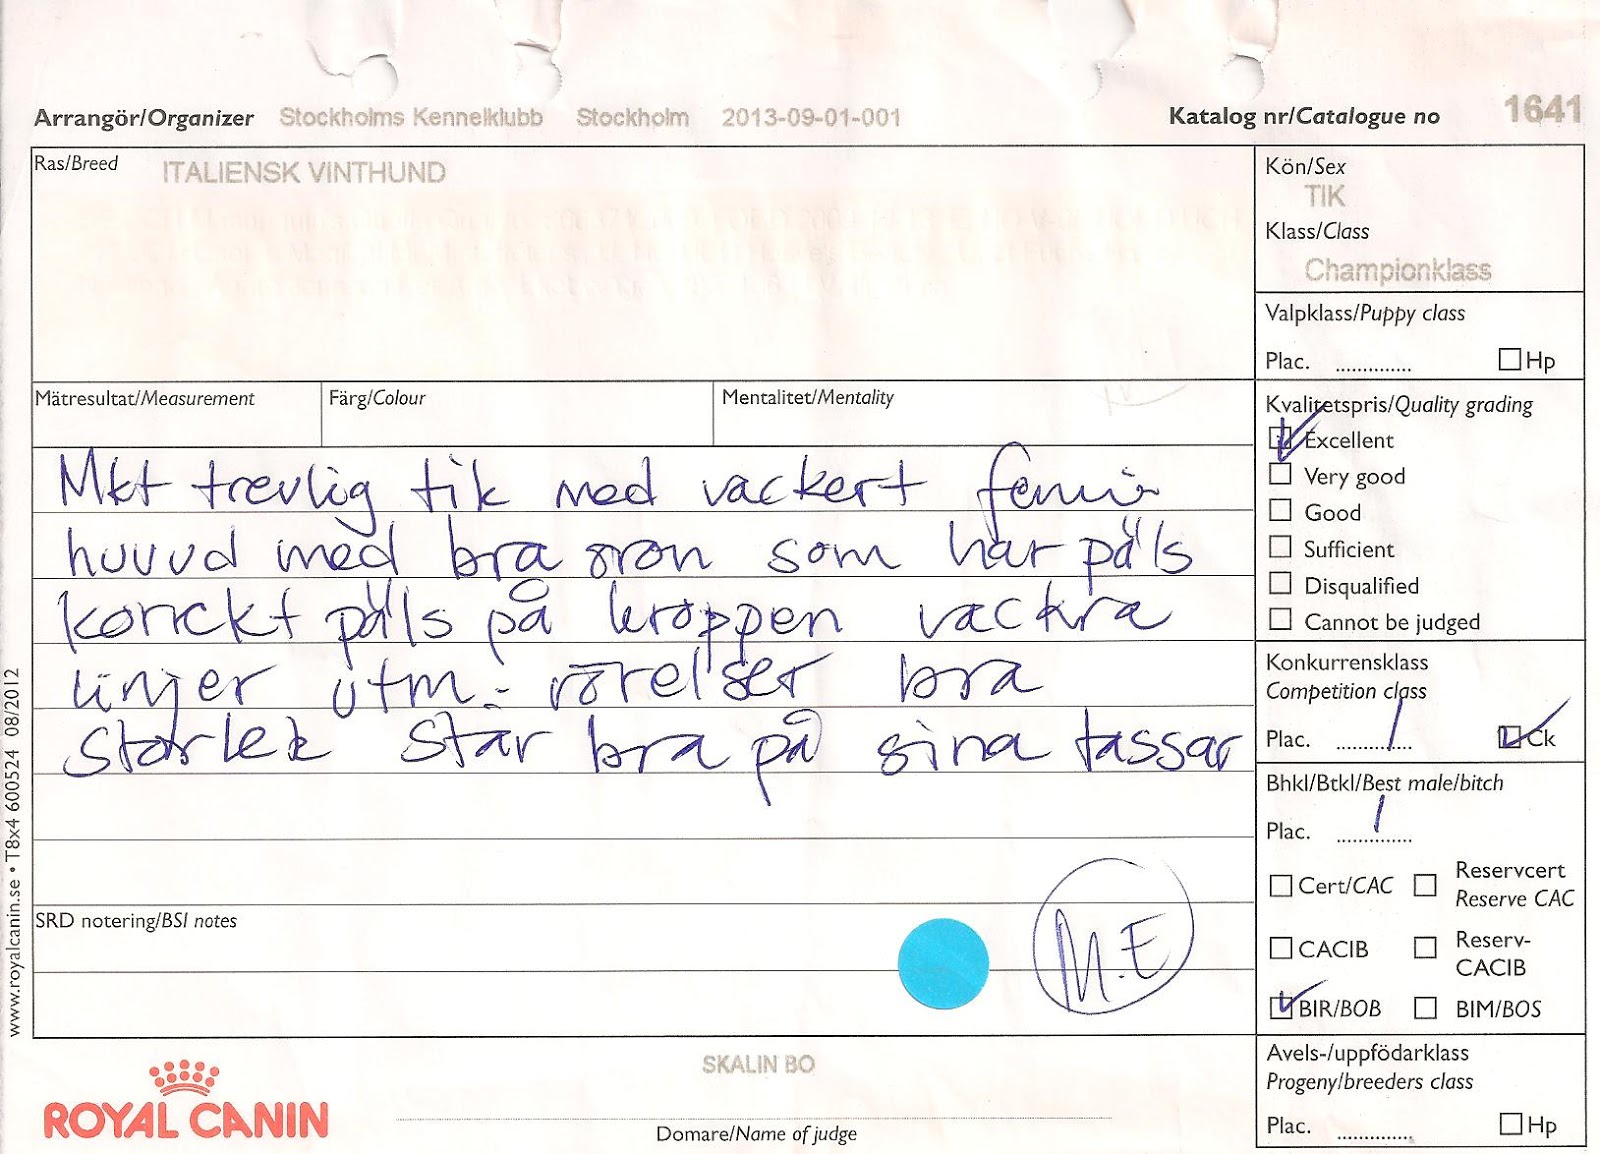 Arrangör/Organizer Stockholms Kennelklubb Stockholm 2013-09-01-001 Katalog nr/Catalogue no 1641
Ras/Breed ITALIENSK VINTHUND
Kön/Sex
TIK
Klass/Class
Championklass
Valpklass/Puppy class
Plac. .............. Hp
Mätresultat/Measurement Färg/Colour Mentalitet/Mentality
Kvalitetspris/Quality grading
Excellent
Very good
Good
Sufficient
Disqualified
Cannot be judged
Mkt trevlig tik med vackert
huvud med bra öron som har päls
korrekt päls på kroppen vackra
linjer utm. rörelser bra
storlek står bra på sina tassar
Konkurrensklass
Competition class
Plac. 1 Ck
Bhkl/Btkl/Best male/bitch
Plac. 1
Cert/CAC Reservcert
Reserve CAC
CACIB Reserv-
CACIB
BIR/BOB BIM/BOS
SRD notering/BSI notes
M.E
Avels-/uppfödarklass
Progeny/breeders class
Plac. .............. Hp
SKALIN BO
Domare/Name of judge
ROYAL CANIN
www.royalcanin.se • T8x4 600524 08/2012